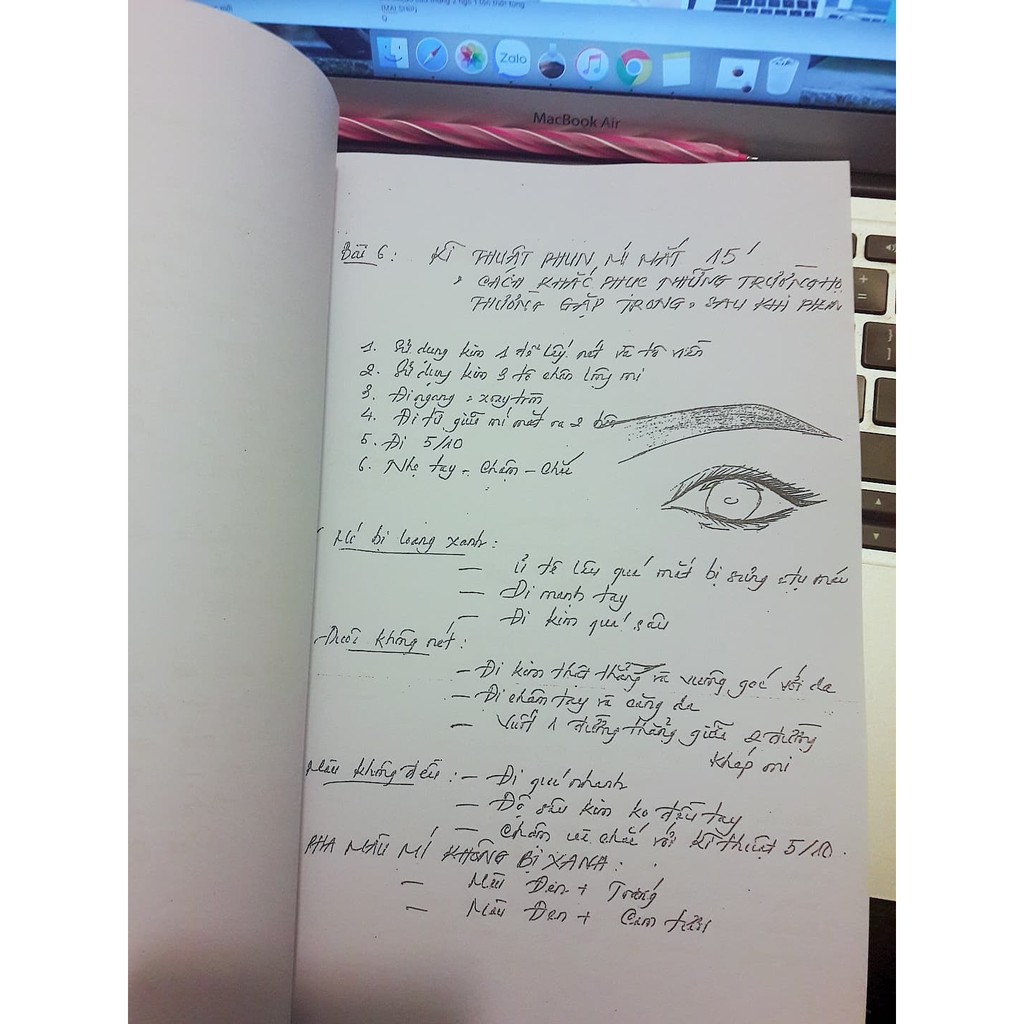 (MAI SHIP)
Zalo
MacBook Air
Bài 6: KĨ THUẬT PHUN MÍ MẮT 15'
CÁCH KHẮC PHỤC NHỮNG TRƯỜNG HỢ
THƯỜNG GẶP TRONG, SAU KHI PHUN
1. Sử dụng kim 1 để lấy nét và tô viền
2. Sử dụng kim 3 tô chân lông mi
3. Đi ngang, xoay tròn
4. Đi từ giữa mí mắt ra 2 bên
5. Đi 5/10
6. Nhẹ tay - Chậm - Chắc
Mí bị loang xanh:
— Ủ tê lâu quá mắt bị sưng, tụ máu
— Đi mạnh tay
— Đi kim quá sâu
Đuôi không nét:
— Đi kim thật thẳng và vuông góc với da
— Đi chậm tay và căng da
— Vuốt 1 đường thẳng giữa 2 đường
khép mi
Màu không đều: — Đi quá nhanh
— Độ sâu kim ko đều tay
— Chậm và chắc với kĩ thuật 5/10.
PHA MÀU MÍ KHÔNG BỊ XANH:
— Màu Đen + Trắng
— Màu Đen + Cam